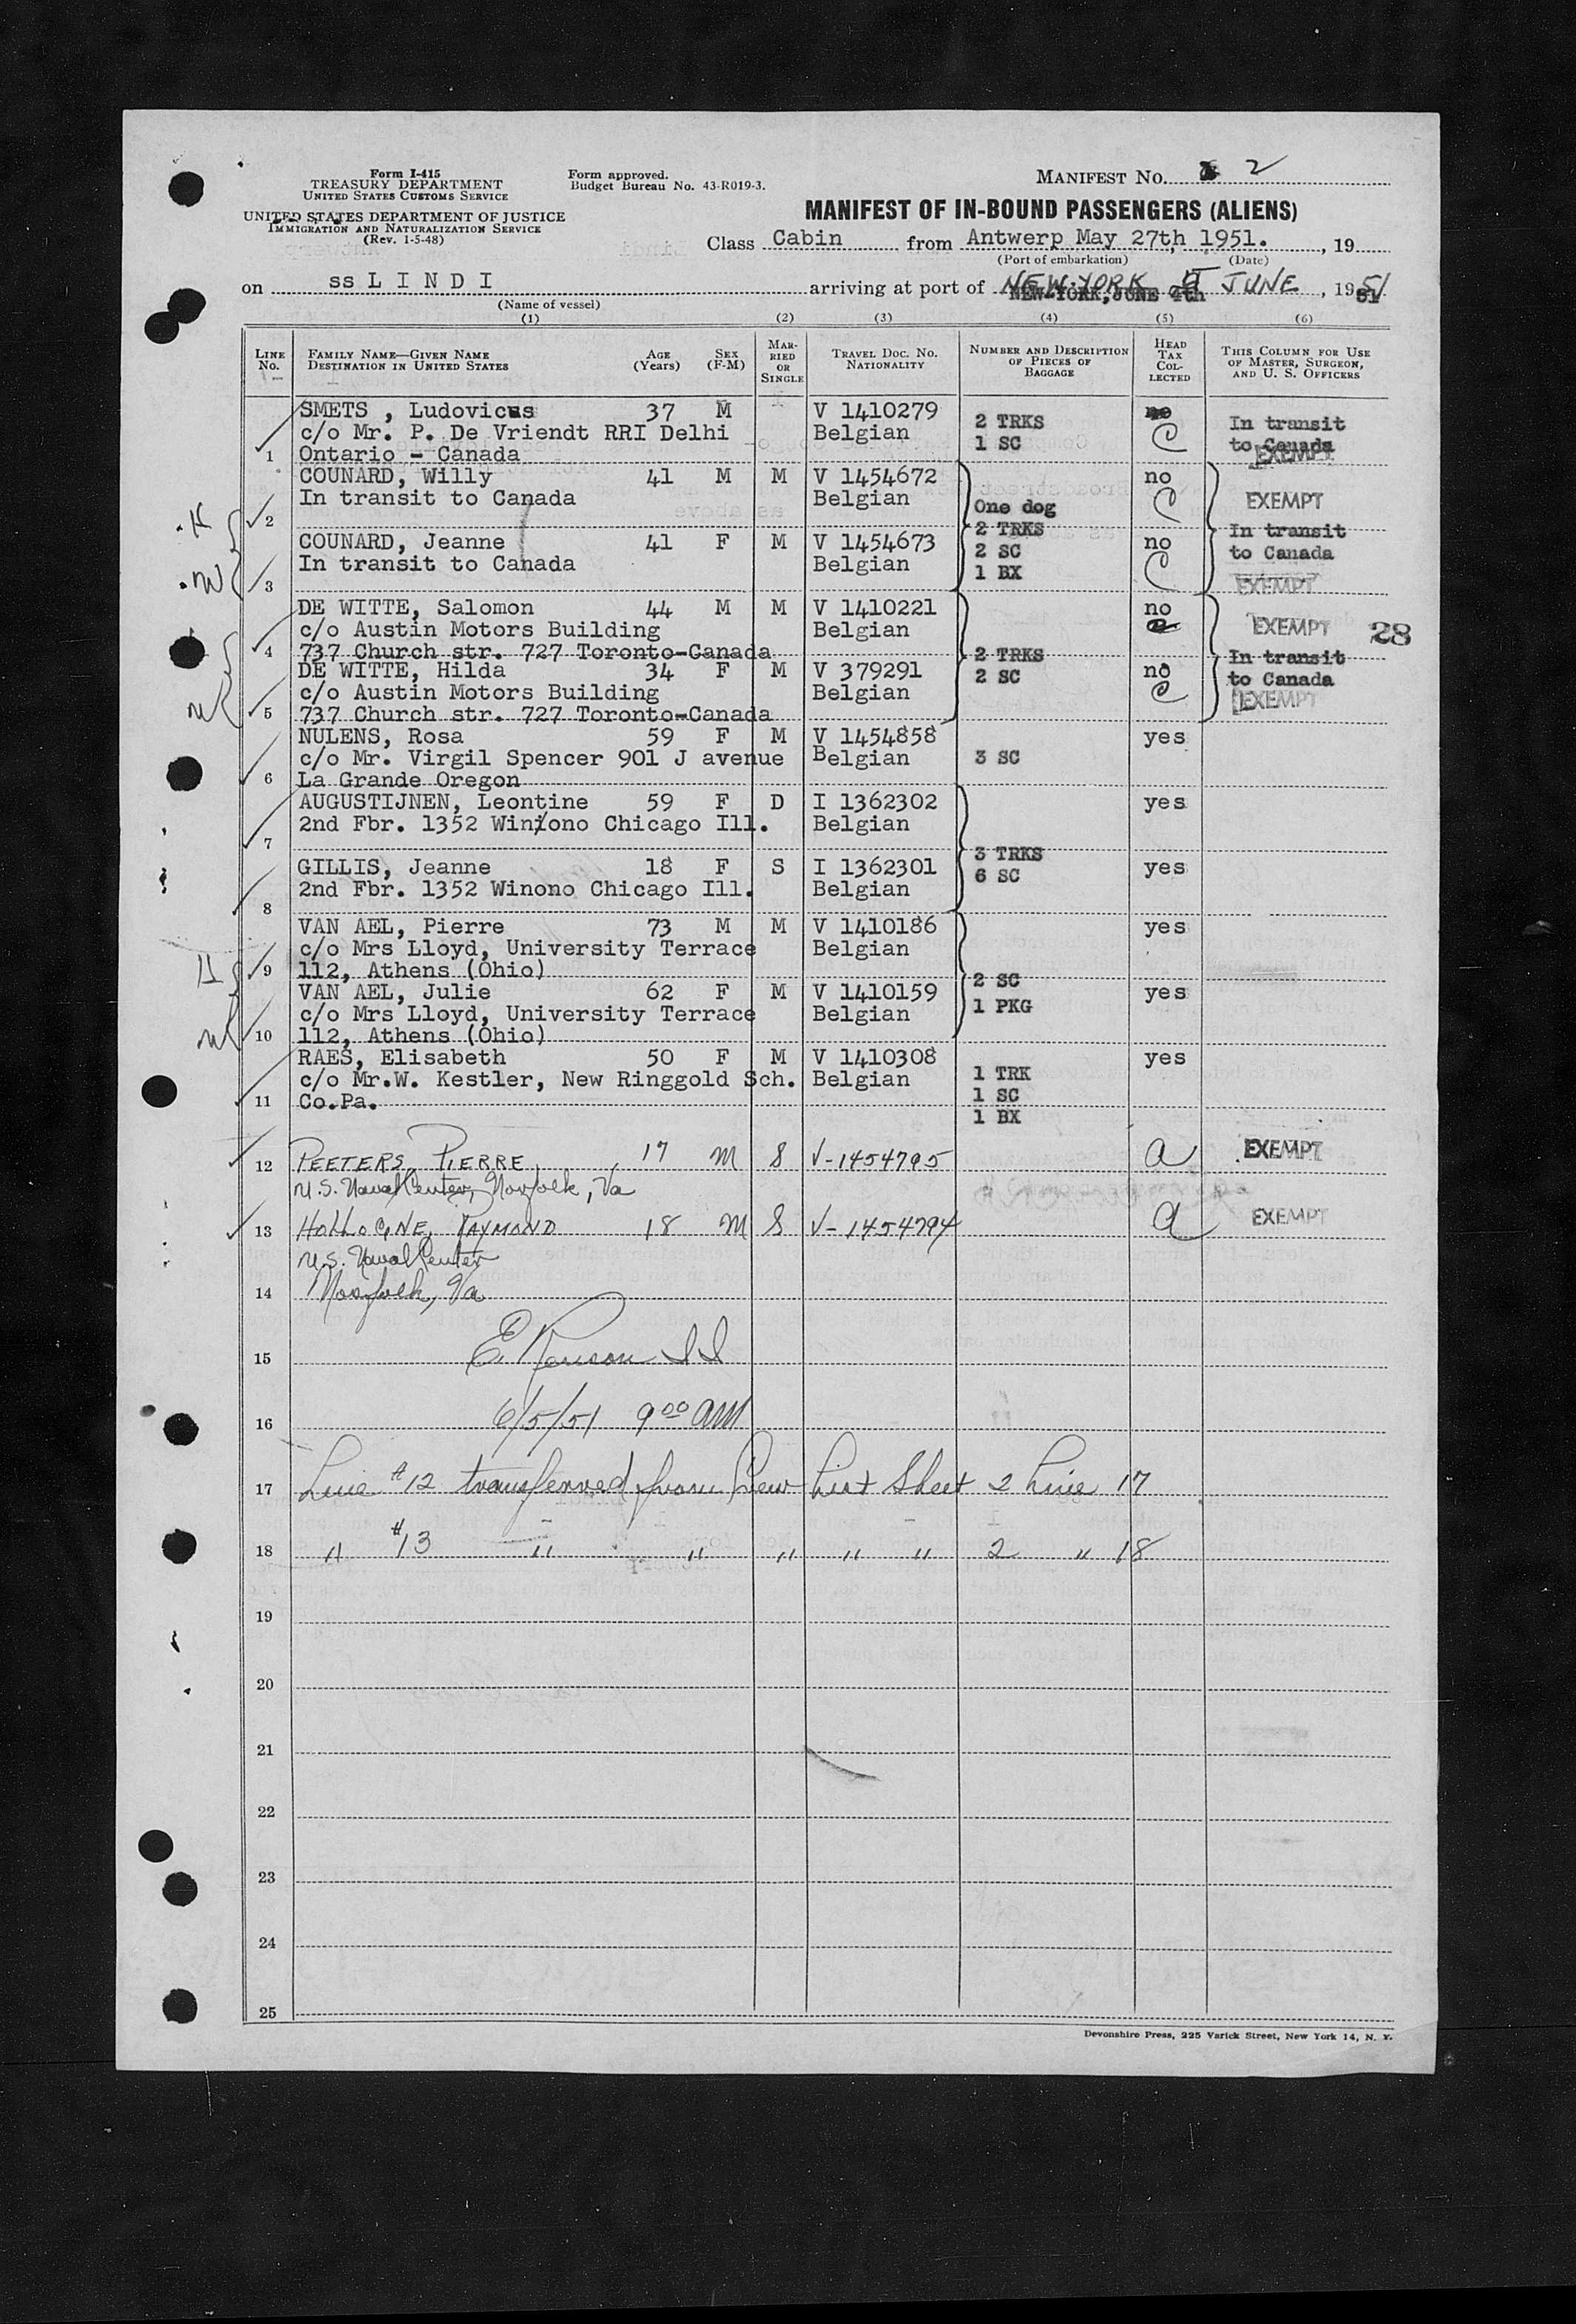 Form I-415
TREASURY DEPARTMENT
UNITED STATES CUSTOMS SERVICE
UNITED STATES DEPARTMENT OF JUSTICE
IMMIGRATION AND NATURALIZATION SERVICE
(Rev. 1-5-48)
Form approved.
Budget Bureau No. 43-R019-3.
MANIFEST NO. 2
MANIFEST OF IN-BOUND PASSENGERS (ALIENS)
Class Cabin from Antwerp May 27th 1951. , 19
(Port of embarkation) (Date)
on ss L I N D I arriving at port of NEW-YORK 5 JUNE , 1951
NEW-YORK, JUNE 4th 51
(Name of vessel)
(1) (2) (3) (4) (5) (6)
LINE No. FAMILY NAME—GIVEN NAME DESTINATION IN UNITED STATES AGE (Years) SEX (F-M) MARRIED OR SINGLE TRAVEL DOC. NO. NATIONALITY NUMBER AND DESCRIPTION OF PIECES OF BAGGAGE HEAD TAX COLLECTED THIS COLUMN FOR USE OF MASTER, SURGEON, AND U. S. OFFICERS
SMETS , Ludovicus 37 M V 1410279 2 TRKS no In transit
c/o Mr. P. De Vriendt RRI Delhi Belgian 1 SC C to Canada
1 Ontario - Canada EXEMPT
COUNARD, Willy 41 M M V 1454672 no
In transit to Canada Belgian One dog C EXEMPT
2 2 TRKS In transit
COUNARD, Jeanne 41 F M V 1454673 2 SC no to Canada
In transit to Canada Belgian 1 BX C
3 EXEMPT
DE WITTE, Salomon 44 M M V 1410221 no
c/o Austin Motors Building Belgian EXEMPT 28
4 737 Church str. 727 Toronto-Canada 2 TRKS In transit
DE WITTE, Hilda 34 F M V 379291 2 SC no to Canada
c/o Austin Motors Building Belgian C EXEMPT
5 737 Church str. 727 Toronto-Canada
NULENS, Rosa 59 F M V 1454858 yes
c/o Mr. Virgil Spencer 901 J avenue Belgian 3 SC
6 La Grande Oregon
AUGUSTIJNEN, Leontine 59 F D I 1362302 yes
2nd Fbr. 1352 Winono Chicago Ill. Belgian
7 3 TRKS
GILLIS, Jeanne 18 F S I 1362301 6 SC yes
2nd Fbr. 1352 Winono Chicago Ill. Belgian
8
VAN AEL, Pierre 73 M M V 1410186 yes
c/o Mrs Lloyd, University Terrace Belgian
9 112, Athens (Ohio) 2 SC
VAN AEL, Julie 62 F M V 1410159 1 PKG yes
c/o Mrs Lloyd, University Terrace Belgian
10 112, Athens (Ohio)
RAES, Elisabeth 50 F M V 1410308 yes
c/o Mr.W. Kestler, New Ringgold Sch. Belgian 1 TRK
11 Co.Pa. 1 SC
1 BX
12 PEETERS, PIERRE, 17 M S V-1454795 a EXEMPT
U.S. Naval Center, Norfolk, Va
13 HOLLOGNE, RAYMOND 18 M S V-1454794 a EXEMPT
U.S. Naval Center
14 Norfolk, Va
15
16 6/5/51 9 00 AM
17 Line #12 transferred from Crew List Sheet 2 Line 17
18 " #13 " " " " " 2 " 18
19
20
21
22
23
24
25
Devonshire Press, 225 Varick Street, New York 14, N. Y.